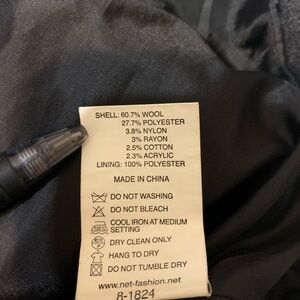 SHELL: 60.7% WOOL
27.7% POLYESTER
3.8% NYLON
3% RAYON
2.5% COTTON
2.3% ACRYLIC
LINING: 100% POLYESTER
MADE IN CHINA
DO NOT WASHING
DO NOT BLEACH
COOL IRON AT MEDIUM
SETTING
DRY CLEAN ONLY
HANG TO DRY
DO NOT TUMBLE DRY
www.net-fashion.net
8-1824